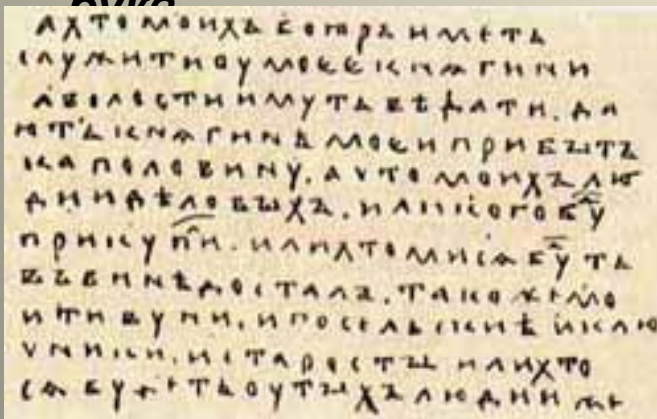 А ХТО МОИХЪ БОꙖРЪ ИМЕТЬ
СЛУЖИТИ ОУ МОЕЕ КНѦГИНИ
А ВОЛОСТИ ИМУТЬ ВѢДАТИ. ДА
ЮТЬ КНѦГИНѢ МОЕИ ПРИБЫТЪ
КА ПОЛОВИНУ. А ЧТО МОИХЪ ЛЮ
ДИИ ДѢЛОВЫХЪ. ИЛИ КОГО БУ
ПРИКУПИ. ИЛИ ХТО МИ СѦ БУ ТЬ
ВЪ ВИНѢ ДОСТАЛЪ. ТАКОЖЕ МО
И ТИВУНИ. И ПОСЕЛЬСКИѢ И КЛЮ
ЧНИКИ. И СТАРОСТЫ ИЛИ ХТО
СѦ БУДЕТЬ ОУ ТЫХЪ ЛЮДИИ